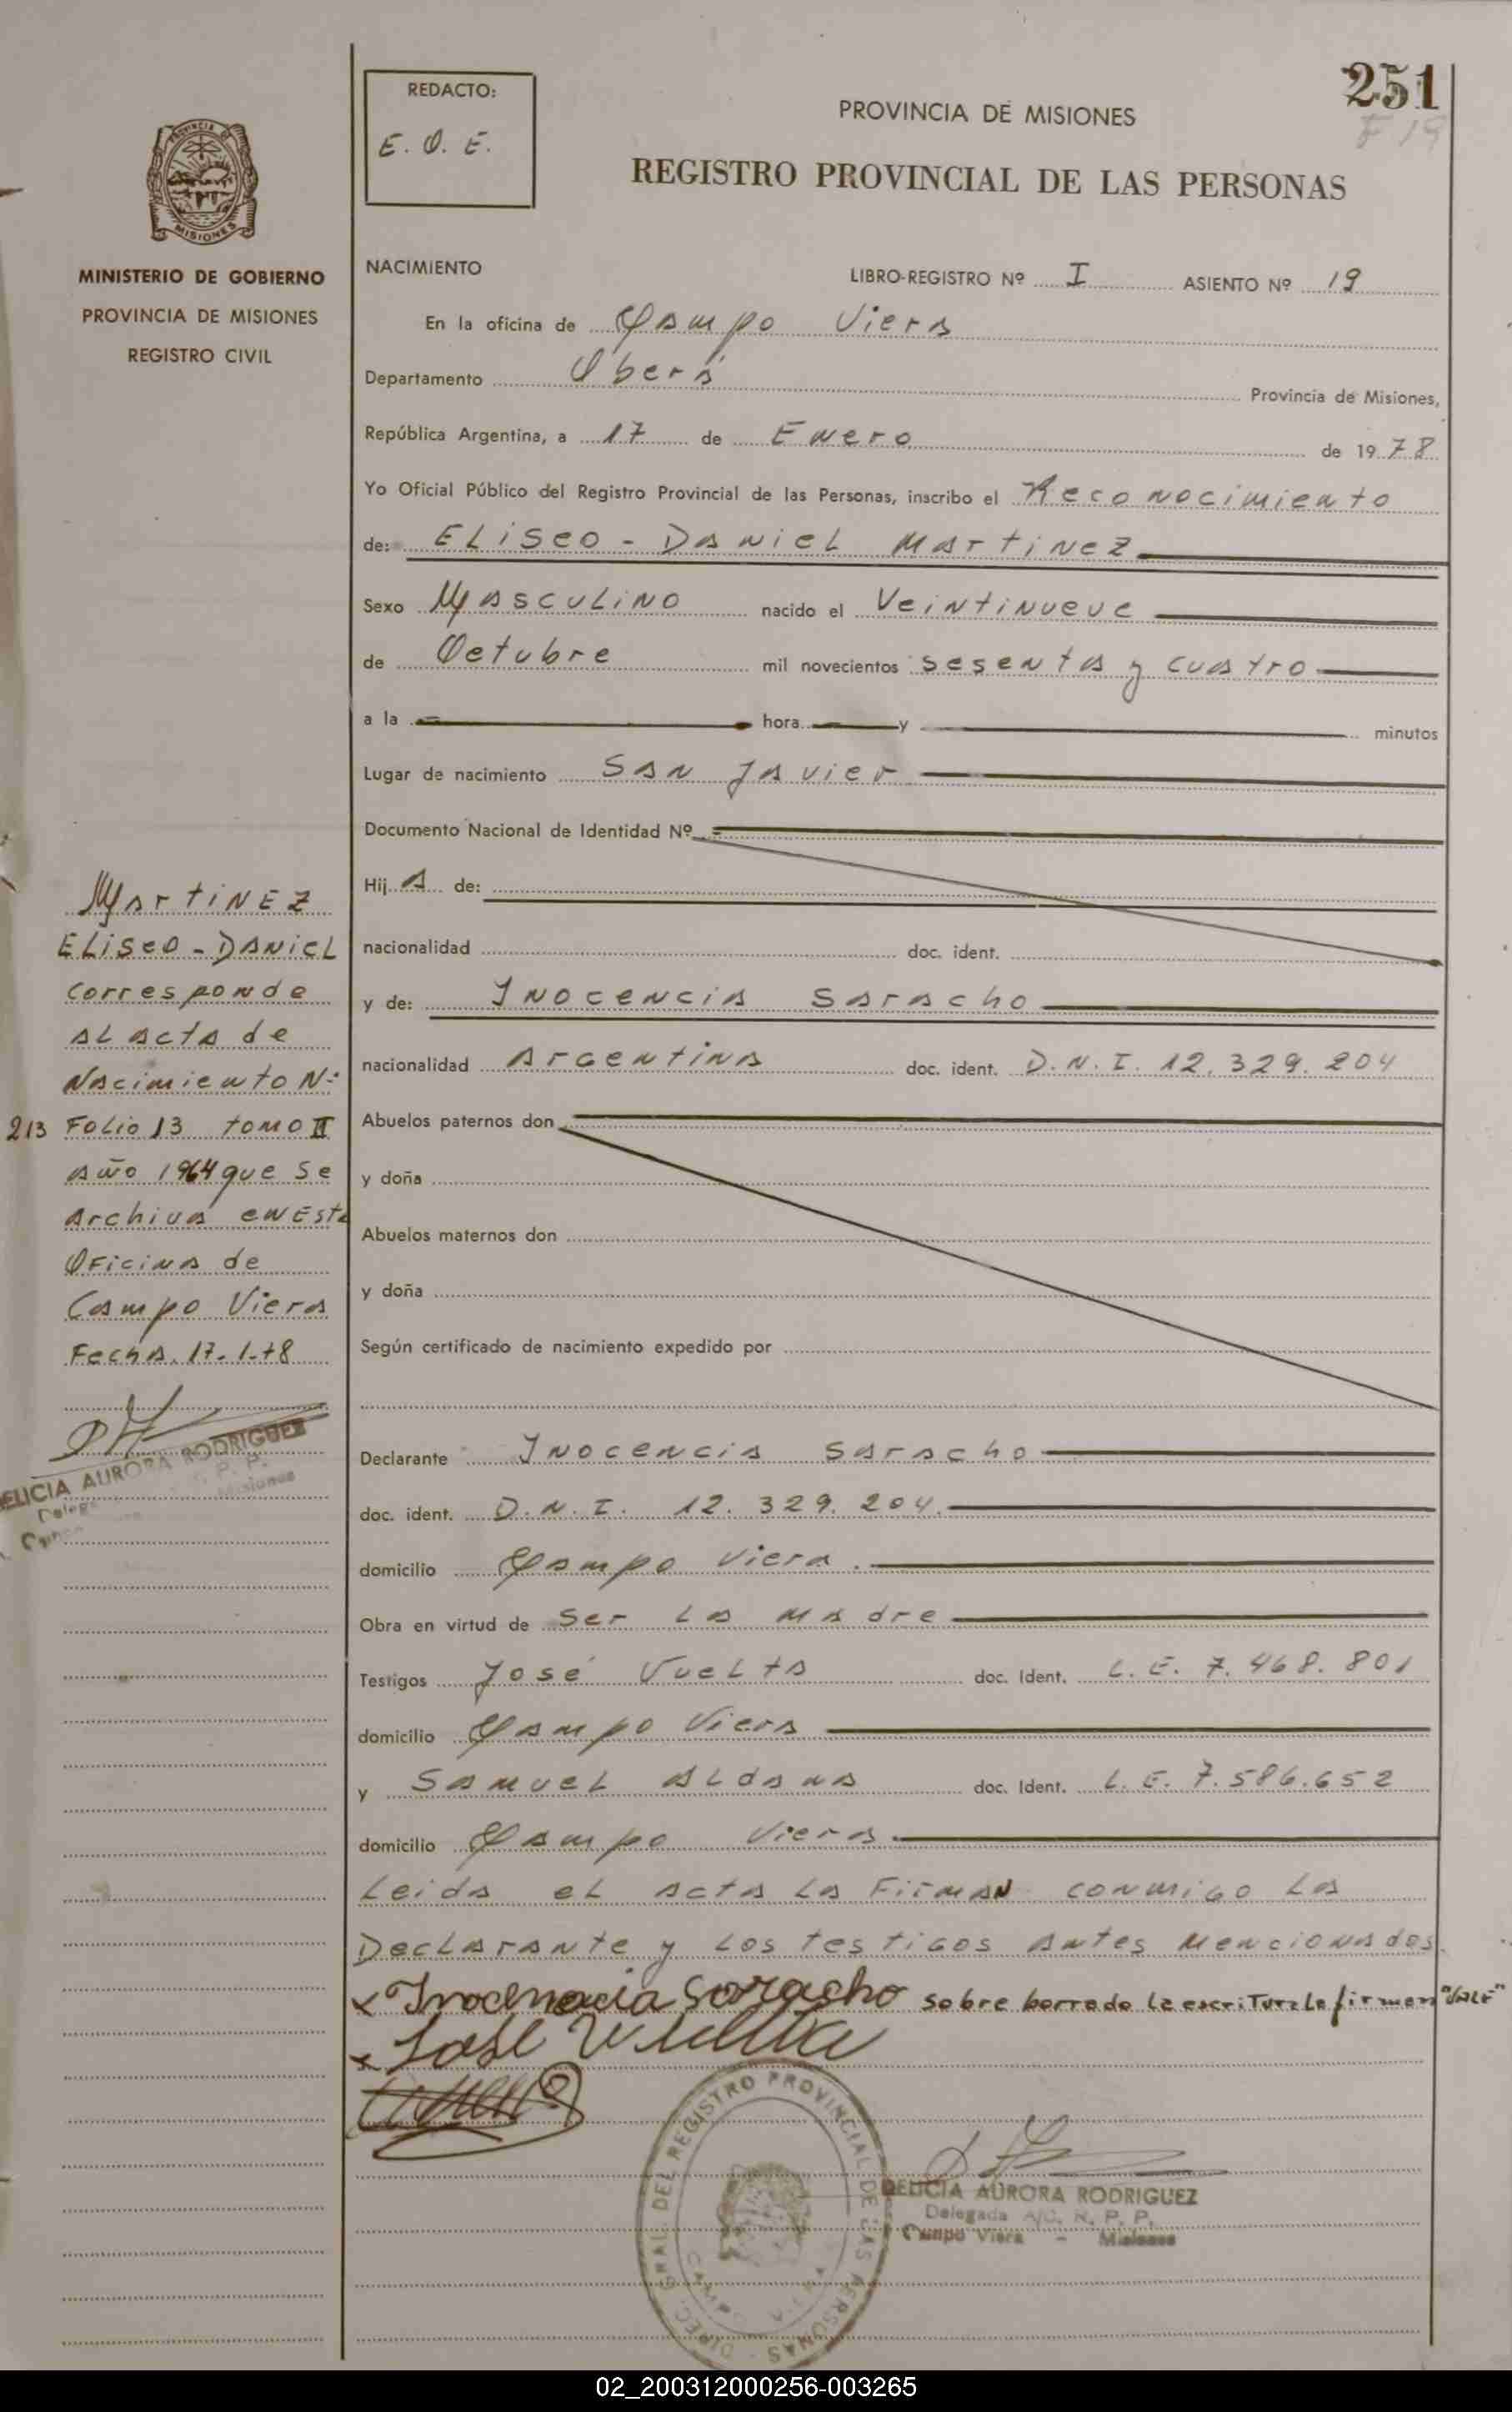 251
F 19
REDACTO:
E. O. E.
PROVINCIA DE MISIONES
REGISTRO PROVINCIAL DE LAS PERSONAS
PROVINCIA DE
MISIONES
MINISTERIO DE GOBIERNO
PROVINCIA DE MISIONES
REGISTRO CIVIL
NACIMIENTO LIBRO-REGISTRO Nº I ASIENTO Nº 19
En la oficina de Campo Viera
Departamento Oberá Provincia de Misiones,
República Argentina, a 17 de Enero de 1978
Yo Oficial Público del Registro Provincial de las Personas, inscribo el Reconocimiento
de: ELiseo - DaNieL Martinez
Sexo MascuLiNo nacido el VeiNtiNueve
de Octubre mil novecientos sesenta y cuatro
a la hora y minutos
Lugar de nacimiento San Javier
Documento Nacional de Identidad Nº
Hij a de:
nacionalidad doc. ident.
y de: Inocencia Saracho
nacionalidad Argentina doc. ident. D.N.I. 12.329.204
Abuelos paternos don
y doña
Abuelos maternos don
y doña
Según certificado de nacimiento expedido por
Declarante Inocencia Saracho
doc. ident. D.N.I. 12.329.204.
domicilio Campo Viera.
Obra en virtud de Ser La madre
Testigos José Vuelta doc. Ident. L.E. 7.468.801
domicilio Campo Viera
y Samuel Aldana doc. Ident. L.E. 7.586.652
domicilio Campo Viera
Leida el acta La Firman conmigo La
Declarante y Los testigos antes mencionados.
x Inocencia Soracho sobre borrado la escritura La firman "VALE"
x José Vuelta
DELICIA AURORA RODRIGUEZ
Delegada A/C. R. P. P.
Campo Viera - Misiones
DIREC. GRAL. DEL REGISTRO PROVINCIAL DE LAS PERSONAS
MartiNEZ
ELiseo - DANiel
Corresponde
al acta de
Nacimiento Nº
213 Folio 13 tomo II
año 1964 que se
Archiva en Esta
Oficina de
Campo Viera
Fecha. 17-1-78
DELICIA AURORA RODRIGUEZ
02_200312000256-003265